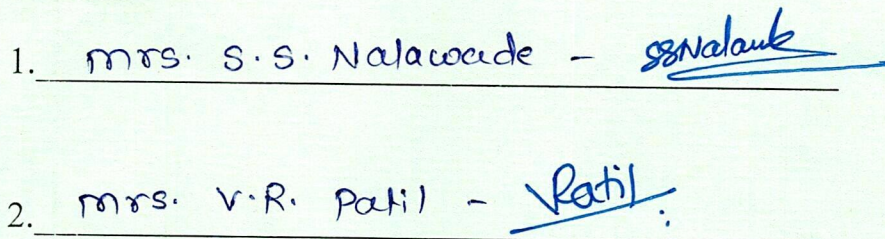 1. Mrs. S.S. Nalawade - SSNalawde
2. Mrs. V.R. Patil - VPatil